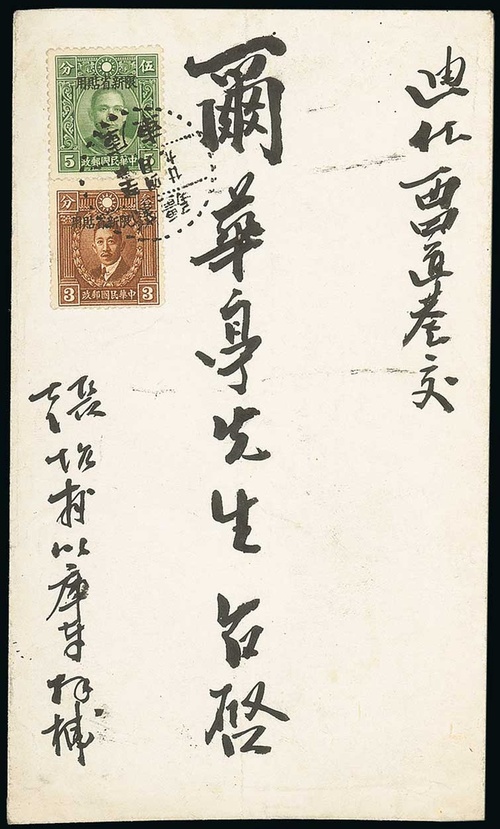 迪化西道巷交
爾華亭先生台啓
庫車
伍 分
限新省貼用
5 中華民國郵政
分
限新省貼用
3 中華民國郵政 3